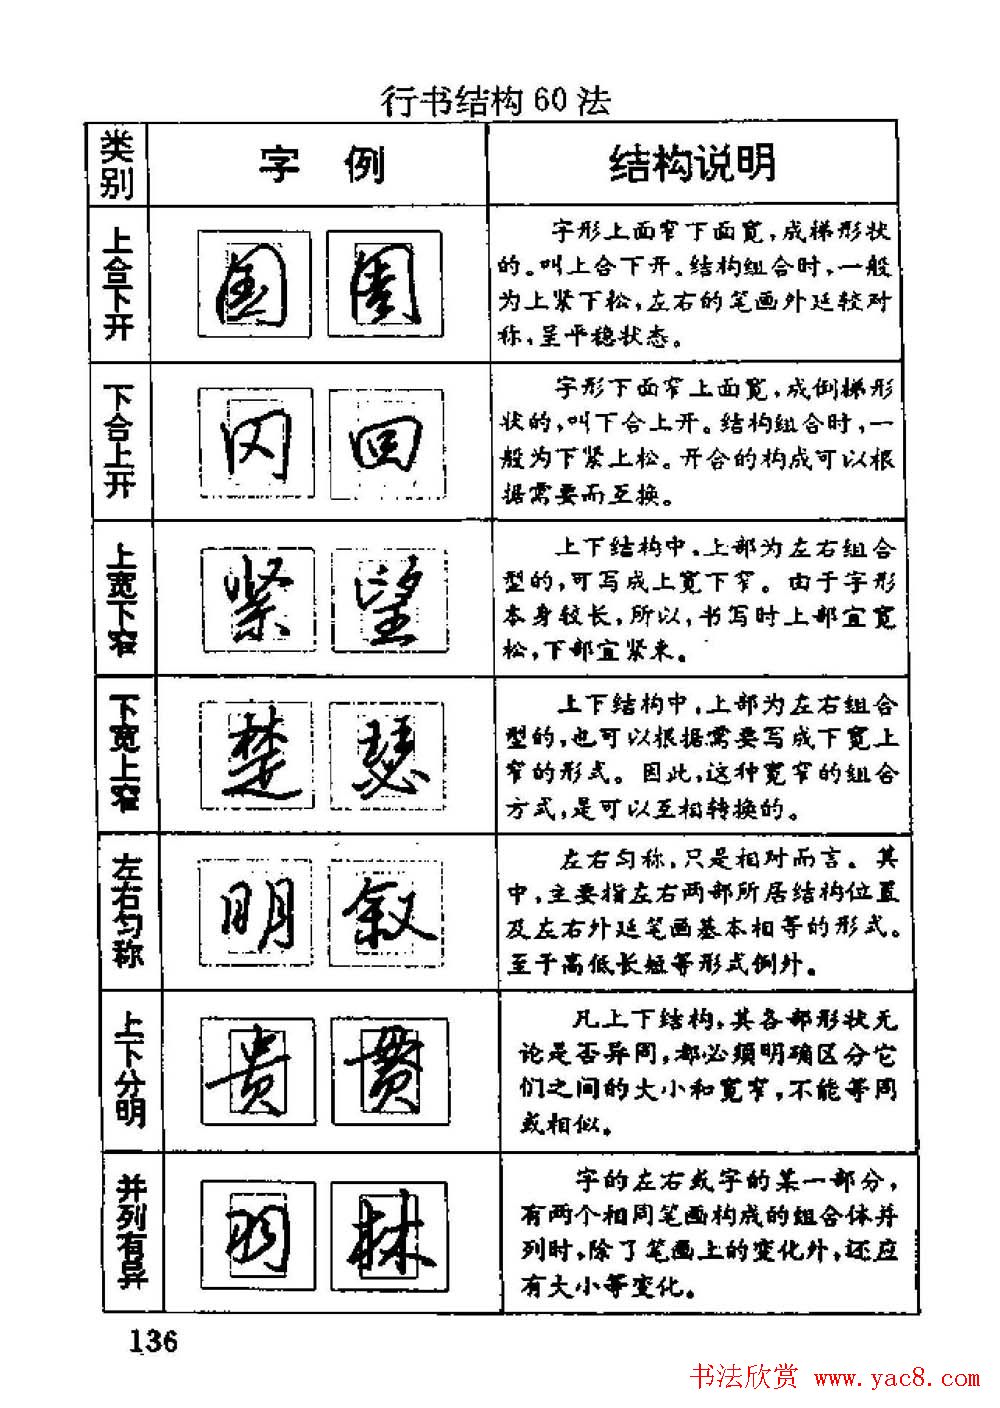 行书结构60法
类别 字例 结构说明
上合下开 国 周
字形上面窄下面宽，成梯形状
的。叫上合下开。结构组合时，一般
为上紧下松，左右的笔画外延较对
称，呈平稳状态。
下合上开 闪 四
字形下面窄上面宽，成倒梯形
状的，叫下合上开。结构组合时，一
般为下紧上松。开合的构成可以根
据需要而互换。
上宽下窄 紧 望
上下结构中，上部为左右组合
型的，可写成上宽下窄。由于字形
本身较长，所以，书写时上部宜宽
松，下部宜紧束。
下宽上窄 楚 瑟
上下结构中，上部为左右组合
型的，也可以根据需要写成下宽上
窄的形式。因此，这种宽窄的组合
方式，是可以互相转换的。
左右匀称 明 叙
左右匀称，只是相对而言。其
中，主要指左右两部所居结构位置
及左右外延笔画基本相等的形式。
至于高低长短等形式例外。
上下分明 贵 贯
凡上下结构，其各部形状无
论是否异同，都必须明确区分它
们之间的大小和宽窄，不能等同
或相似。
并列有异 羽 林
字的左右或字的某一部分，
有两个相同笔画构成的组合体并
列时，除了笔画上的变化外，还应
有大小等变化。
136
书法欣赏 www.yac8.com